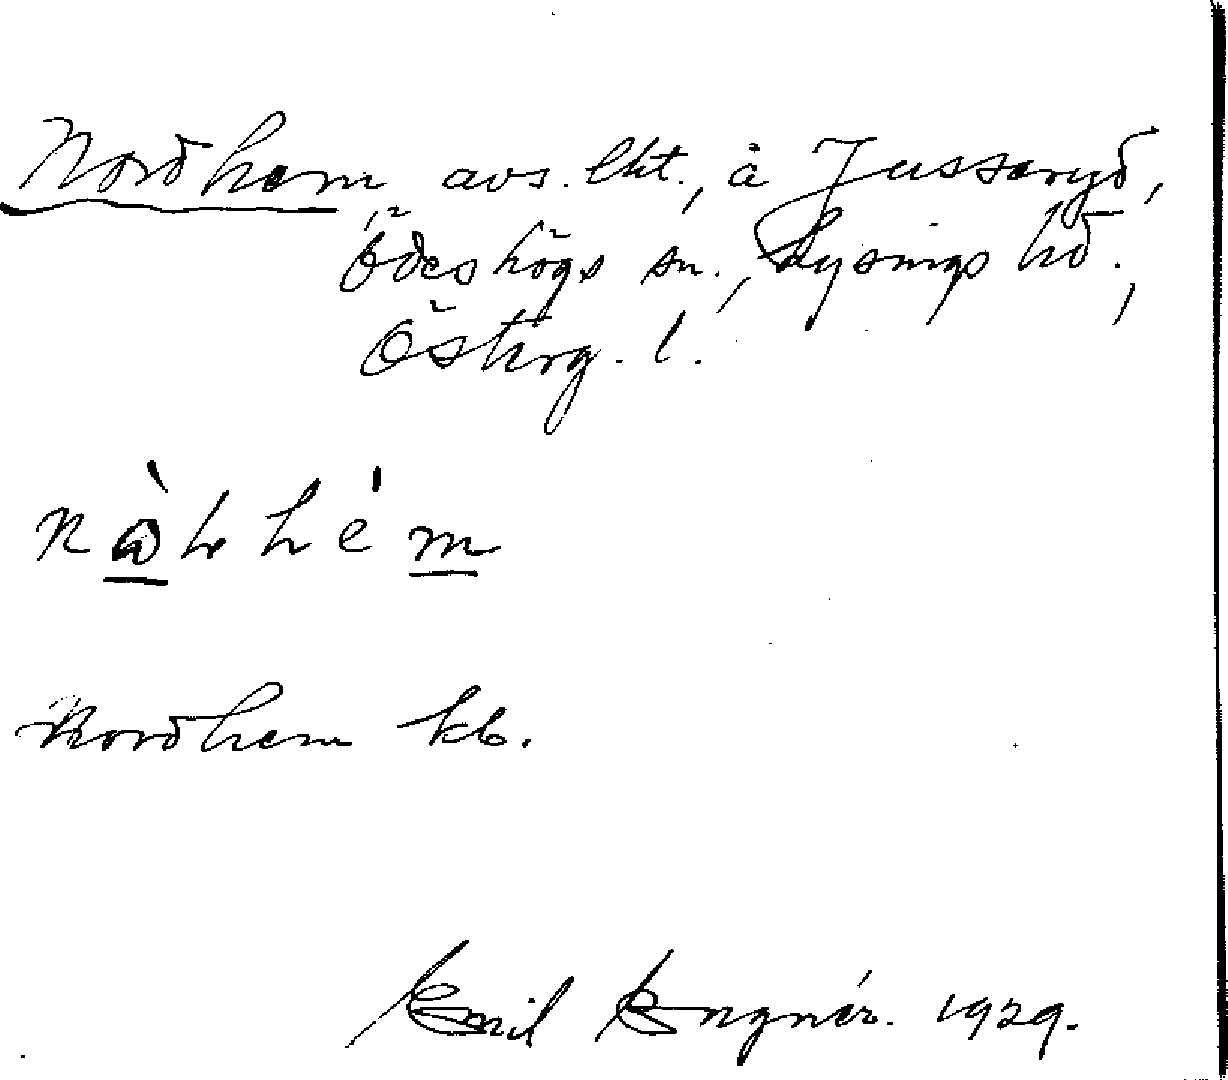 Nordhem, avs. lht., å Jussaryd,
Ödeshögs sn., Lysings hd.,
Österg. l.
Nordhem kb.
Emil Engnér. 1929.